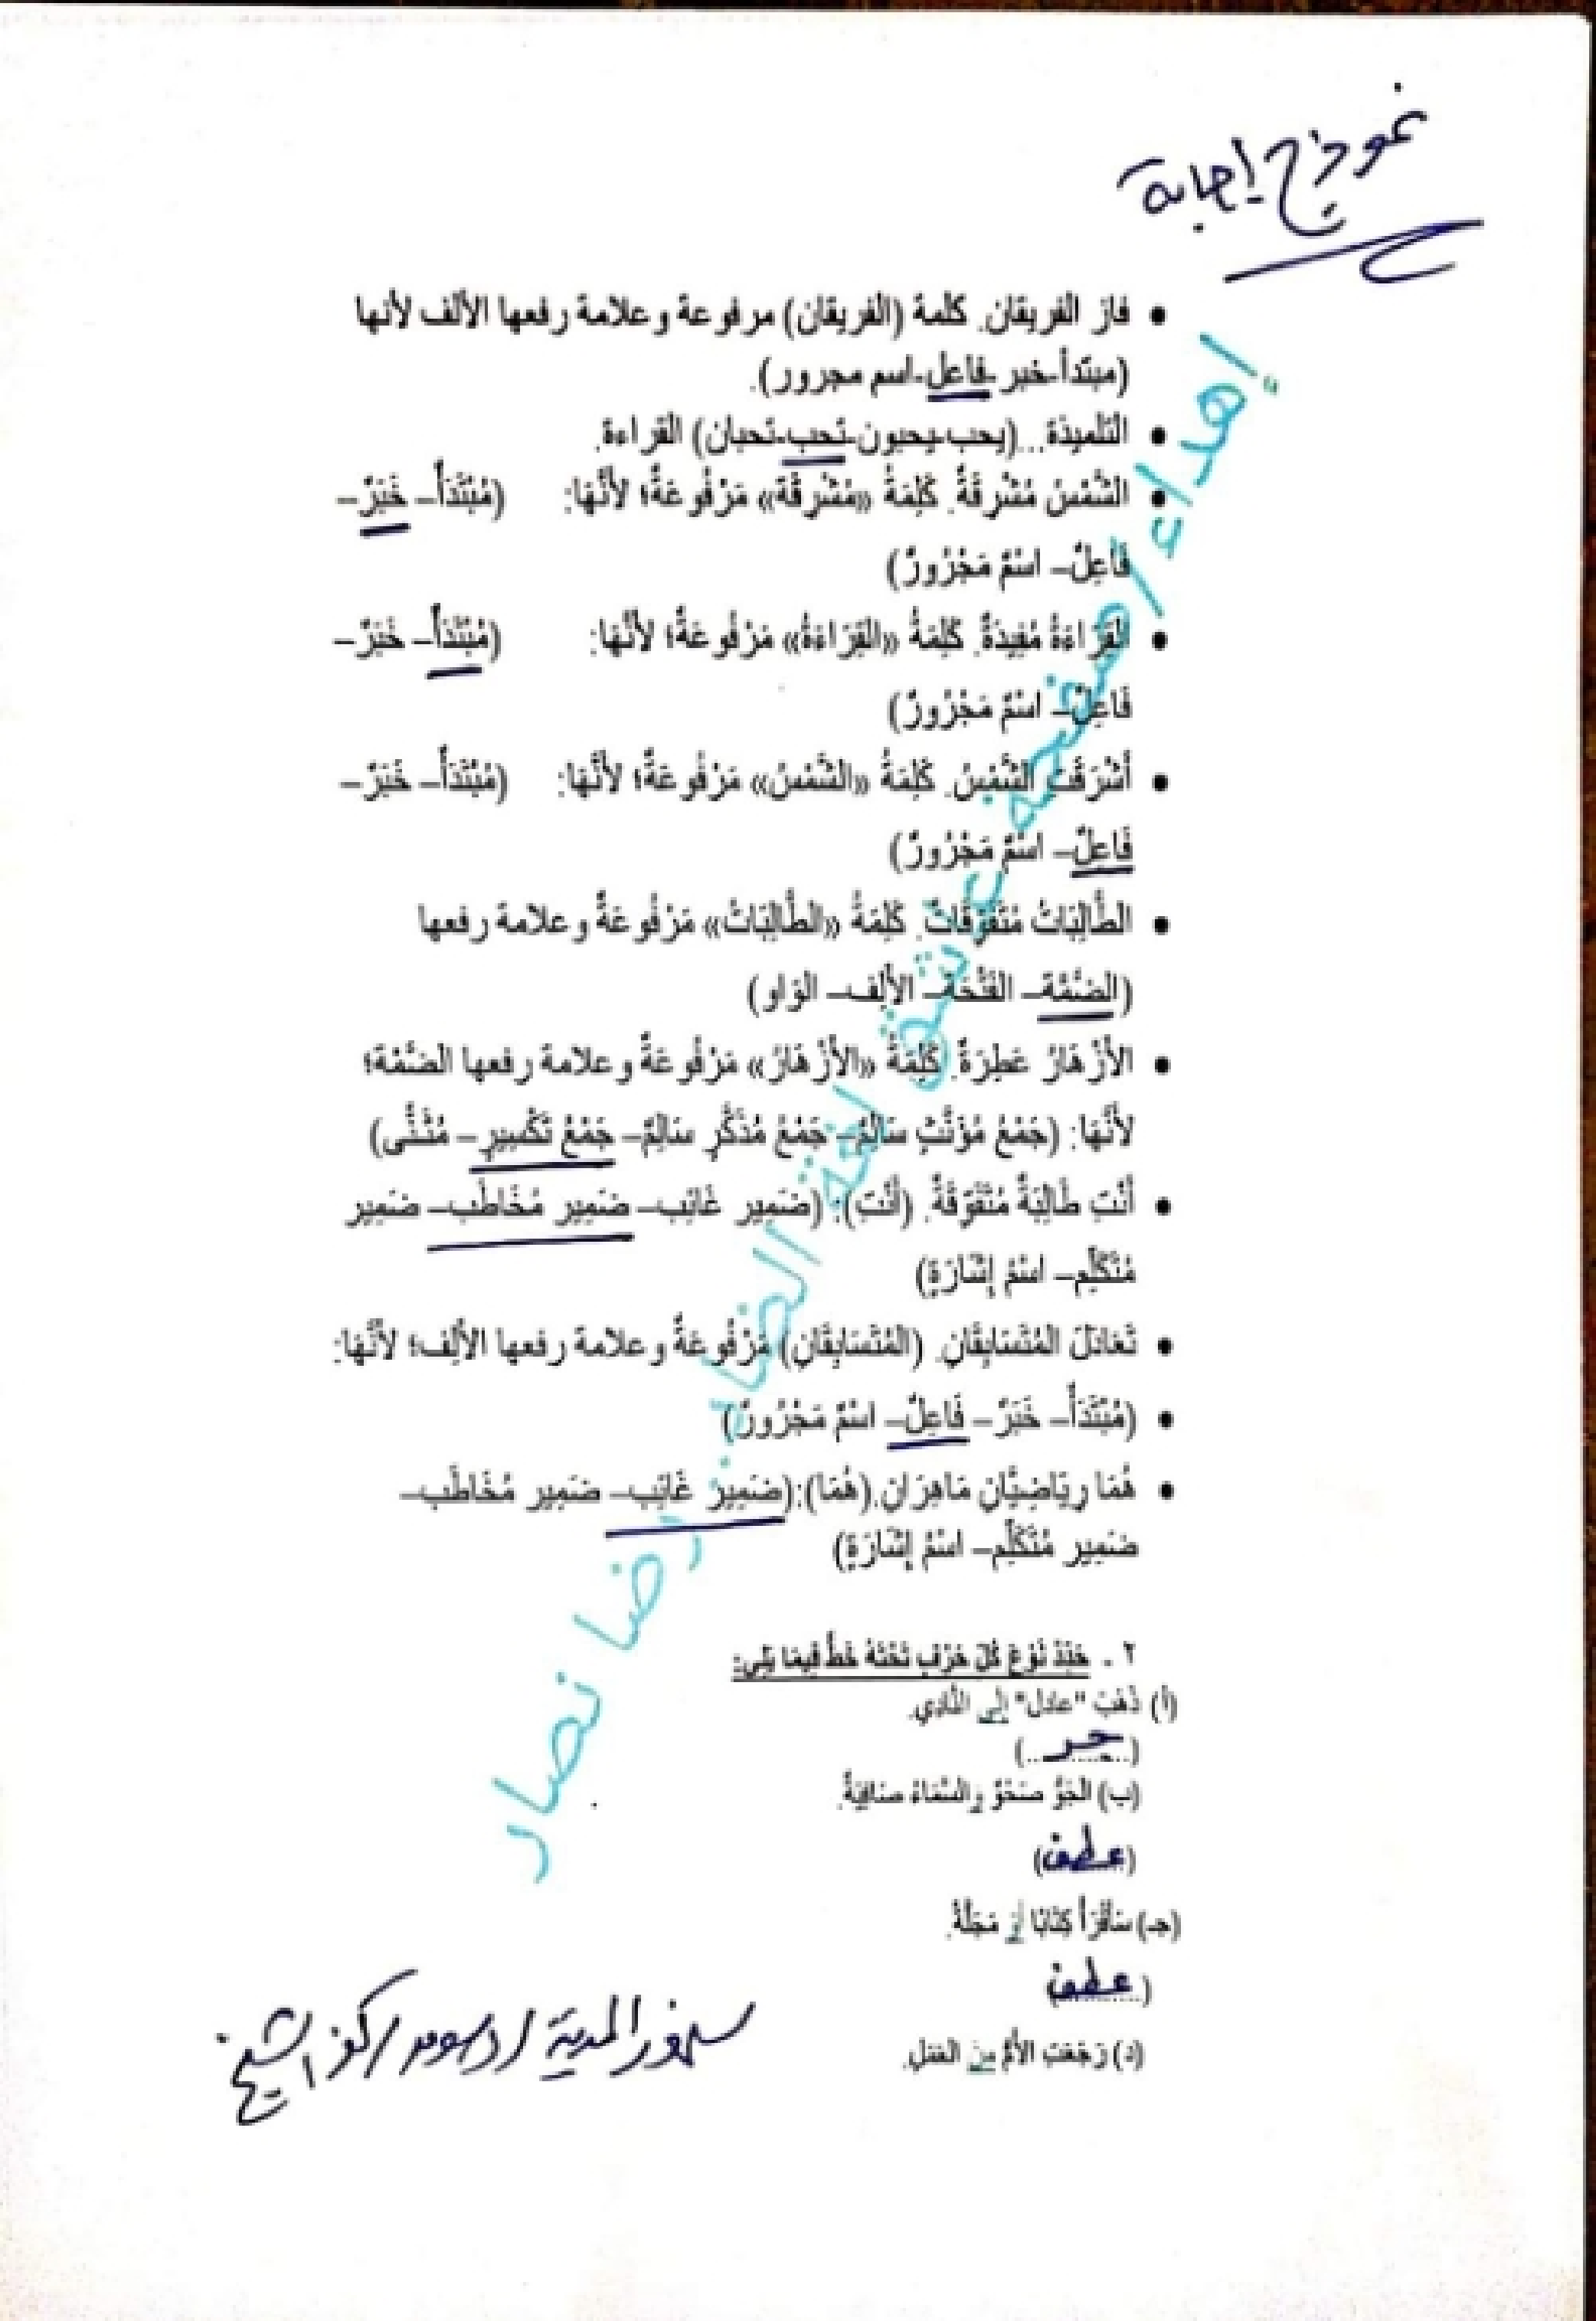 نموذج إجابة
• فاز الفريقان. كلمة (الفريقان) مرفوعة وعلامة رفعها الألف لأنها
(مبتدأ-خبر-فاعل-اسم مجرور).
• التلميذة...(يحب-يحبون-تحب-تحبان) القراءة.
• الشَّمْسُ مُشْرِقَةٌ. كَلِمَةُ «مُشْرِقَة» مَرْفُوعَةٌ؛ لأَنَّهَا: (مُبْتَدَأٌ– خَبَرٌ–
فَاعِلٌ– اسْمٌ مَجْرُورٌ)
• القِرَاءَةُ مُفِيدَةٌ. كَلِمَةُ «القِرَاءَةُ» مَرْفُوعَةٌ؛ لأَنَّهَا: (مُبْتَدَأٌ– خَبَرٌ–
فَاعِلٌ– اسْمٌ مَجْرُورٌ)
• أَشْرَقَتِ الشَّمْسُ. كَلِمَةُ «الشَّمْسُ» مَرْفُوعَةٌ؛ لأَنَّهَا: (مُبْتَدَأٌ– خَبَرٌ–
فَاعِلٌ– اسْمٌ مَجْرُورٌ)
• الطَّالِبَاتُ مُتَفَوِّقَاتٌ. كَلِمَةُ «الطَّالِبَاتُ» مَرْفُوعَةٌ وعلامة رفعها
(الضَّمَّة– الفَتْحَة– الأَلِف– الوَاو)
• الأَزْهَارُ عَطِرَةٌ. كَلِمَةُ «الأَزْهَارُ» مَرْفُوعَةٌ وعلامة رفعها الضَّمَّة؛
لأَنَّهَا: (جَمْعُ مُؤَنَّثٍ سَالِمٌ– جَمْعُ مُذَكَّرٍ سَالِمٌ– جَمْعُ تَكْسِيرٍ– مُثَنًّى)
• أَنْتِ طَالِبَةٌ مُتَفَوِّقَةٌ. (أَنْتِ): (ضَمِير غَائِب– ضَمِير مُخَاطَب– ضَمِير
مُتَكَلِّم– اسْمُ إِشَارَةٍ)
• تَعَادَلَ المُتَسَابِقَانِ. (المُتَسَابِقَانِ) مَرْفُوعَةٌ وعلامة رفعها الأَلِف؛ لأَنَّهَا:
• (مُبْتَدَأٌ– خَبَرٌ– فَاعِلٌ– اسْمٌ مَجْرُورٌ)
• هُمَا رِيَاضِيَّانِ مَاهِرَانِ.(هُمَا):(ضَمِير غَائِب– ضَمِير مُخَاطَب–
ضَمِير مُتَكَلِّم– اسْمُ إِشَارَةٍ)
إهداء / صفحة عاشق لغة الضاد. رضا نصار
٢ - حَدِّدْ نَوْعَ كُلِّ حَرْفٍ تَحْتَهُ خَطٌّ فِيمَا يَلِي:
(أ) ذَهَبَ "عادل" إلى النَّادِي.
(جر)
(ب) الجَوُّ صَحْوٌ وَالسَّمَاءُ صَافِيَةٌ.
(عطف)
(جـ) سَأَقْرَأُ كِتَابًا أَوْ مَجَلَّةً.
(عطف)
(د) رَجَعَتِ الأُمُّ مِنَ العَمَلِ.